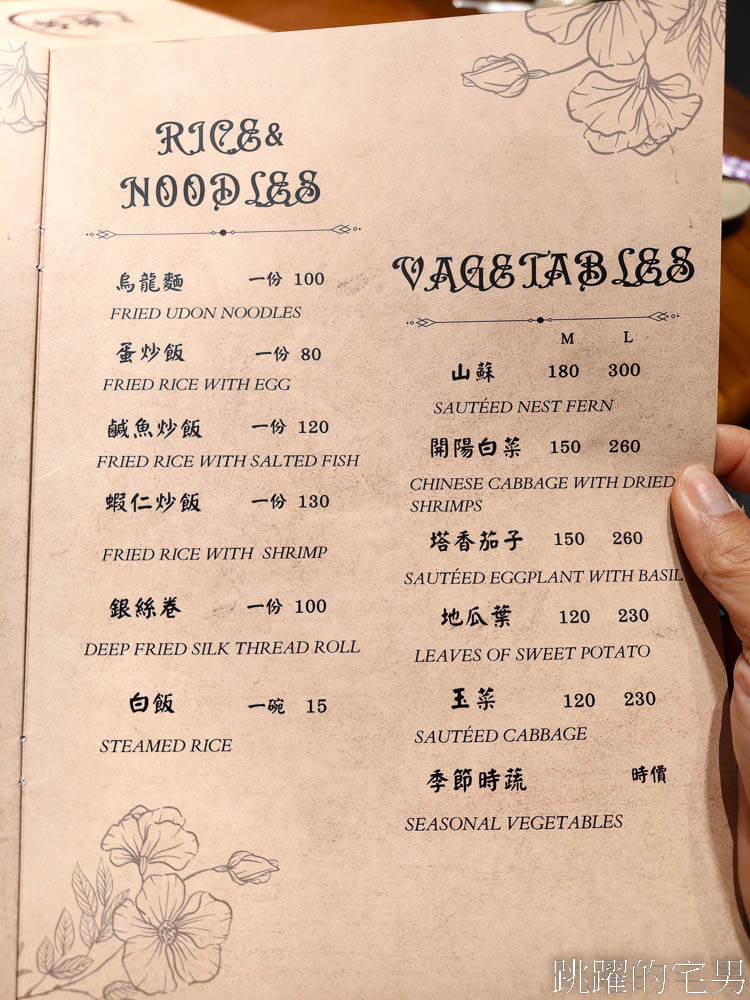 RICE&
NOODLES
烏龍麵 一份 100
FRIED UDON NOODLES
蛋炒飯 一份 80
FRIED RICE WITH EGG
鹹魚炒飯 一份 120
FRIED RICE WITH SALTED FISH
蝦仁炒飯 一份 130
FRIED RICE WITH SHRIMP
銀絲卷 一份 100
DEEP FRIED SILK THREAD ROLL
白飯 一碗 15
STEAMED RICE
VAGETABLES
M L
山蘇 180 300
SAUTÉED NEST FERN
開陽白菜 150 260
CHINESE CABBAGE WITH DRIED
SHRIMPS
塔香茄子 150 260
SAUTÉED EGGPLANT WITH BASIL
地瓜葉 120 230
LEAVES OF SWEET POTATO
玉菜 120 230
SAUTÉED CABBAGE
季節時蔬 時價
SEASONAL VEGETABLES
跳躍的宅男